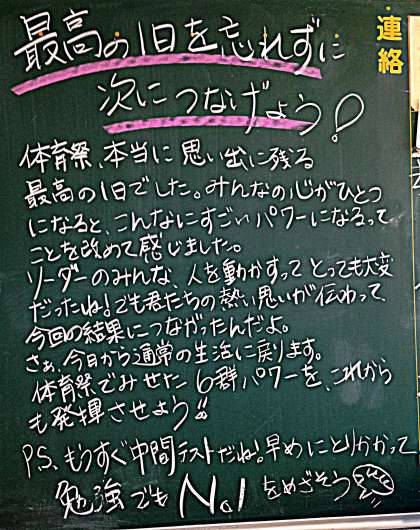 連絡
最高の1日を忘れずに
次につなげよう!
体育祭、本当に思い出に残る
最高の1日でした。みんなの心がひとつ
になると、こんなにすごいパワーになるって
ことを改めて感じました。
リーダーのみんな、人を動かすってとっても大変
だったね!でも君たちの熱い思いが伝わって、
今回の結果につながったんだよ。
さぁ、今日から通常の生活に戻ります。
体育祭でみせた6群パワーを、これから
も発揮させよう!!
P.S、もうすぐ中間テストだね!早めにとりかかって
勉強でもNo.1をめざそう